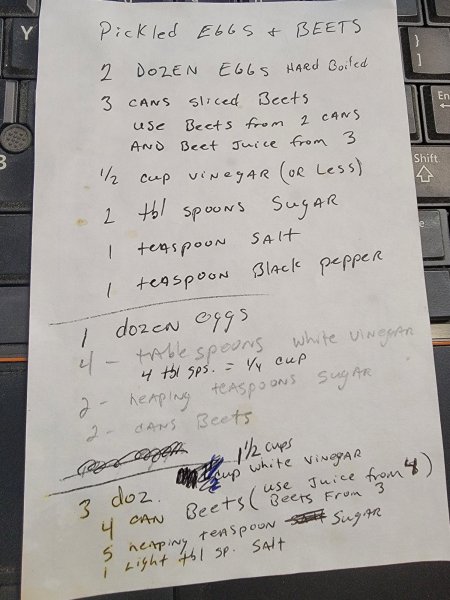 Pickled EGGS + BEETS
2 DOZEN EGGS HARD Boiled
3 CANS Sliced Beets
USE Beets from 2 CANS
AND Beet Juice from 3
1/2 cup VINEGAR (OR LESS)
2 tbl spoons SUGAR
1 teaspoon SALT
1 teaspoon Black pepper
1 dozen eggs
4 - tablespoons white vinegar
4 tbl sps. = 1/4 cup
2 - heaping teaspoons SUGAR
2 - CANS Beets
1 1/2 cups
cup white VINEGAR
3 doz.
4 CAN Beets (use Juice from 4)
Beets From 3
5 heaping teaspoon SUGAR
1 Light tbl sp. SALT
Y
}
]
En
Shift
B